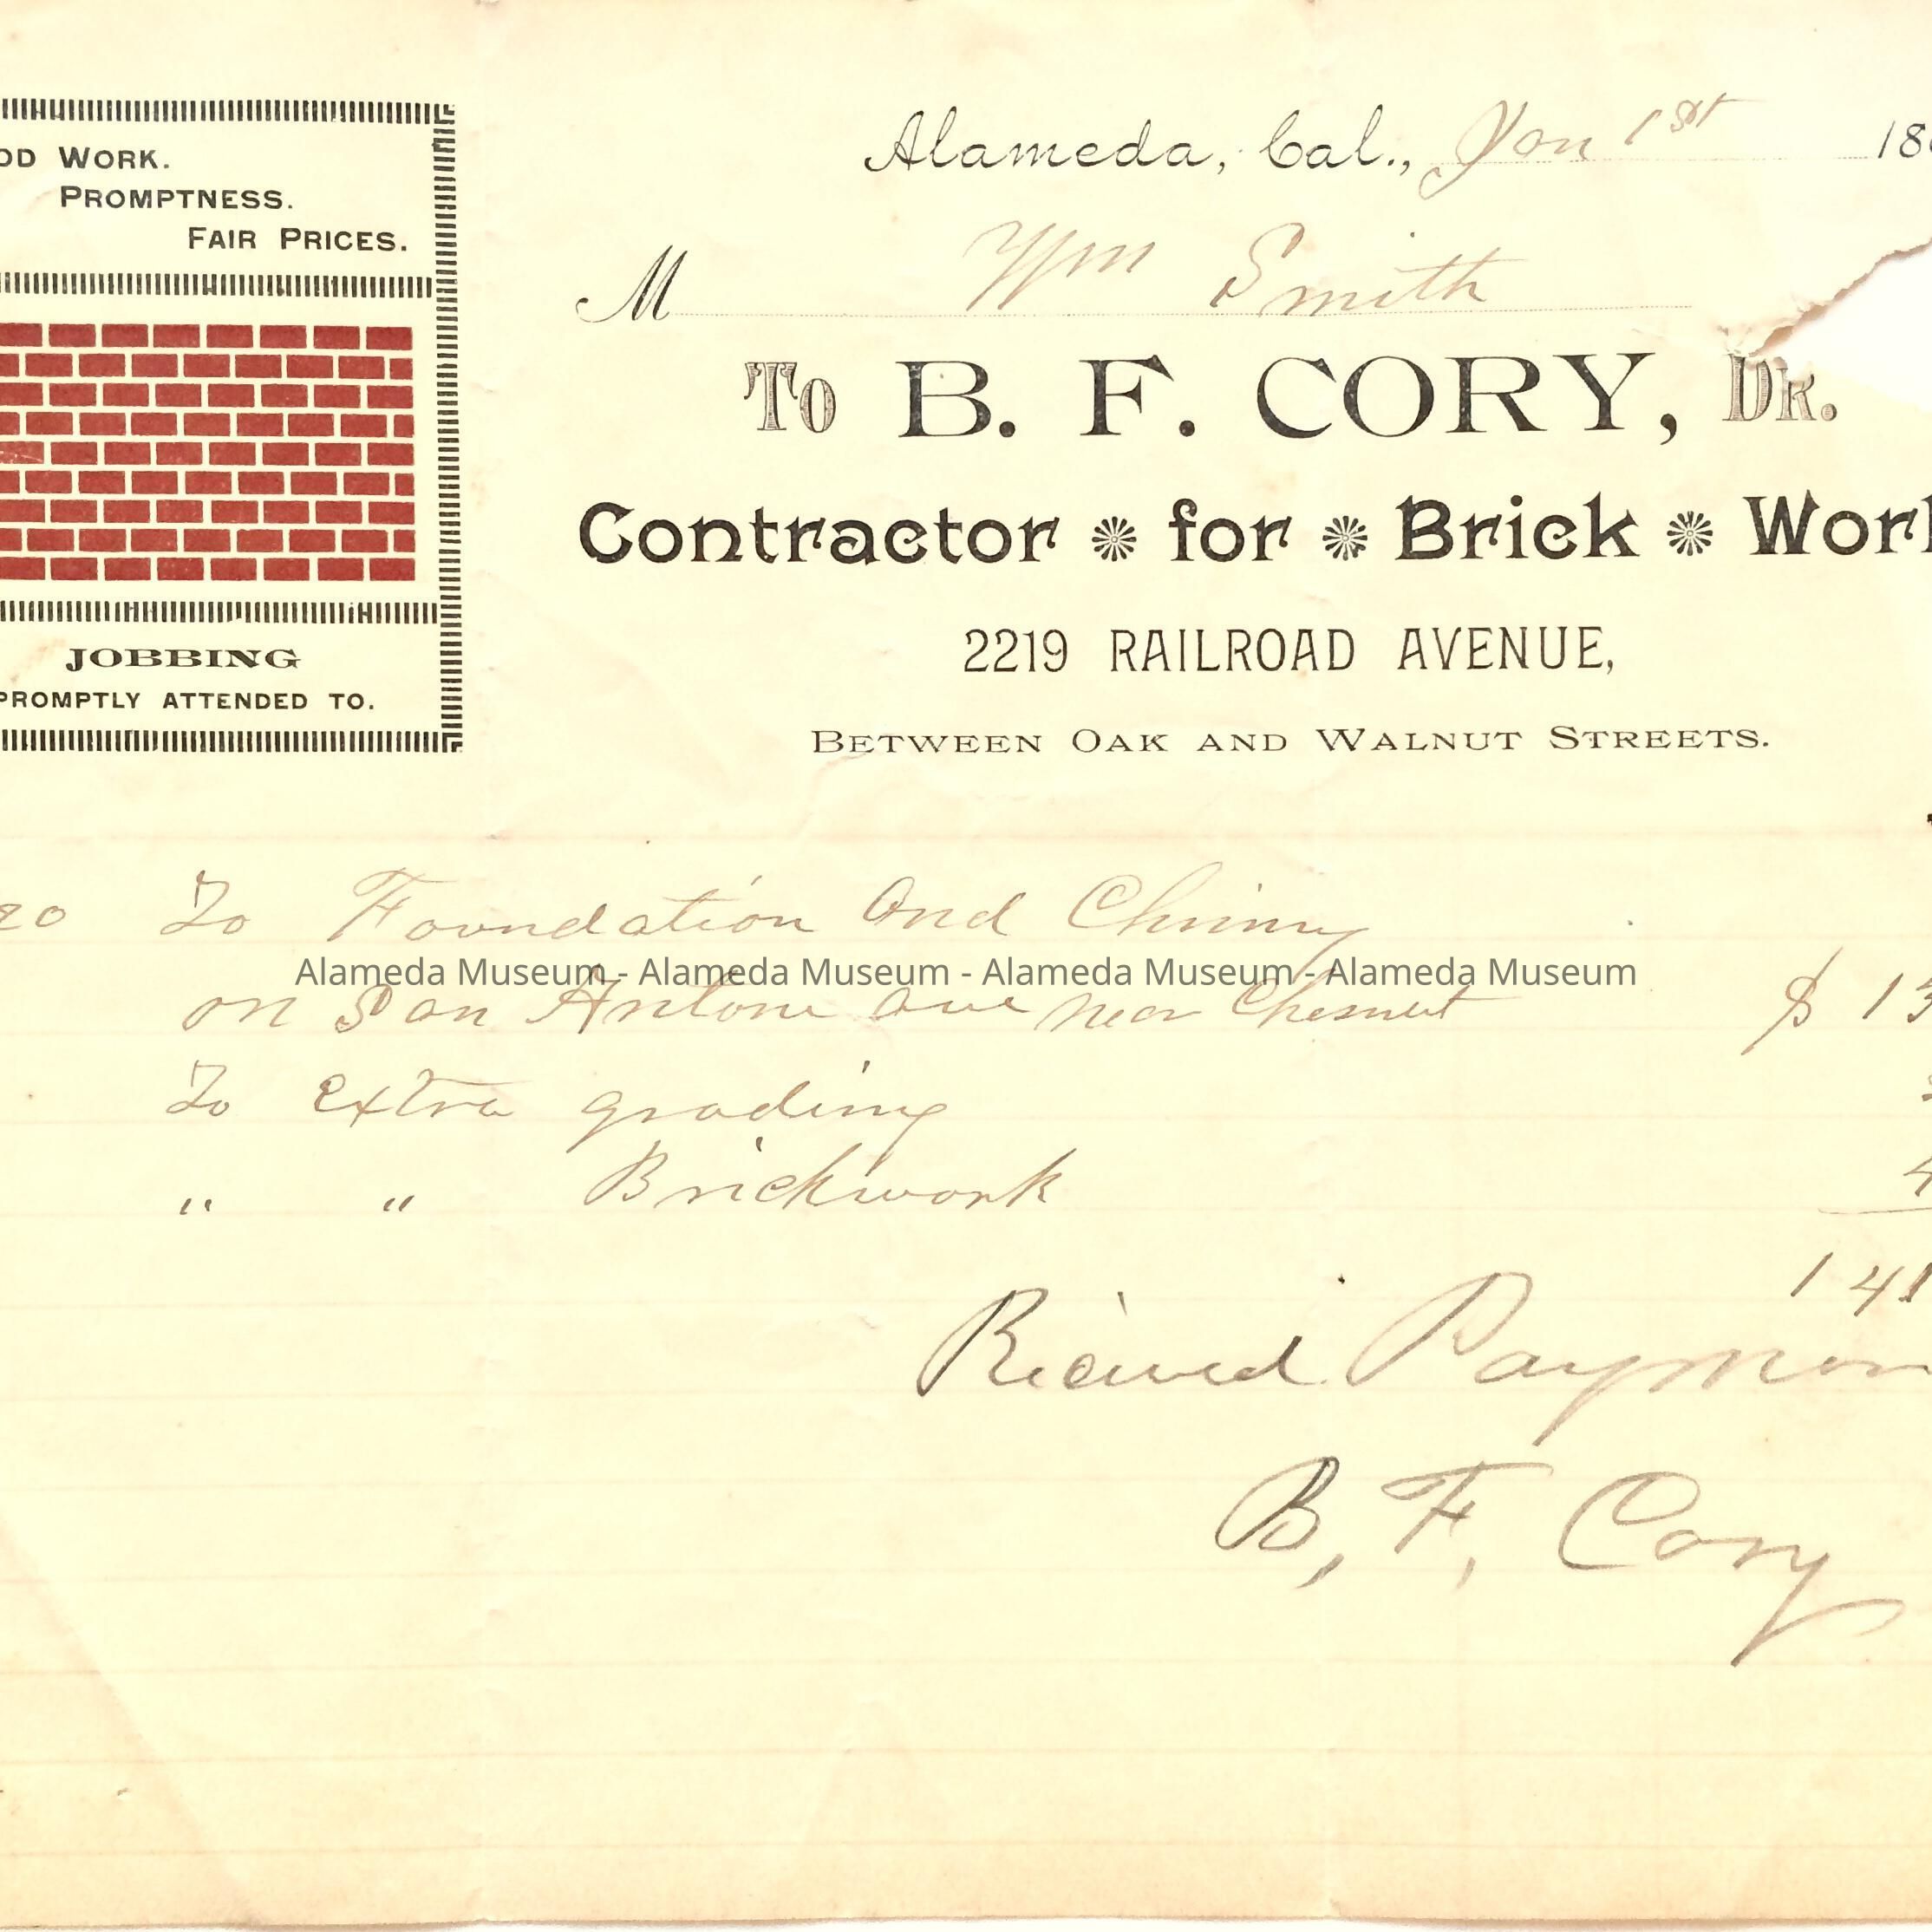 OD WORK.
PROMPTNESS.
FAIR PRICES.
JOBBING
PROMPTLY ATTENDED TO.
Alameda, Cal., Jan 1st 18
M Wm Smith
To B. F. CORY, DR.
Contractor for Brick Work
2219 RAILROAD AVENUE,
BETWEEN OAK AND WALNUT STREETS.
20 To Foundation and Chimny
Alameda Museum - Alameda Museum - Alameda Museum - Alameda Museum
on San Antoni ave near Chesnut $ 13
To extra grading
" " Brickwork 4
141
Recieved Paymen
B, F, Cory